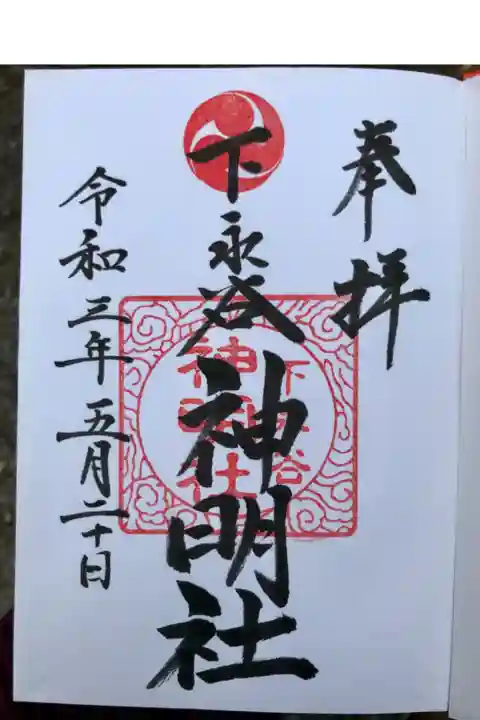 奉拝
下永谷
神明社
令和三年五月二十日
下永谷
神明社